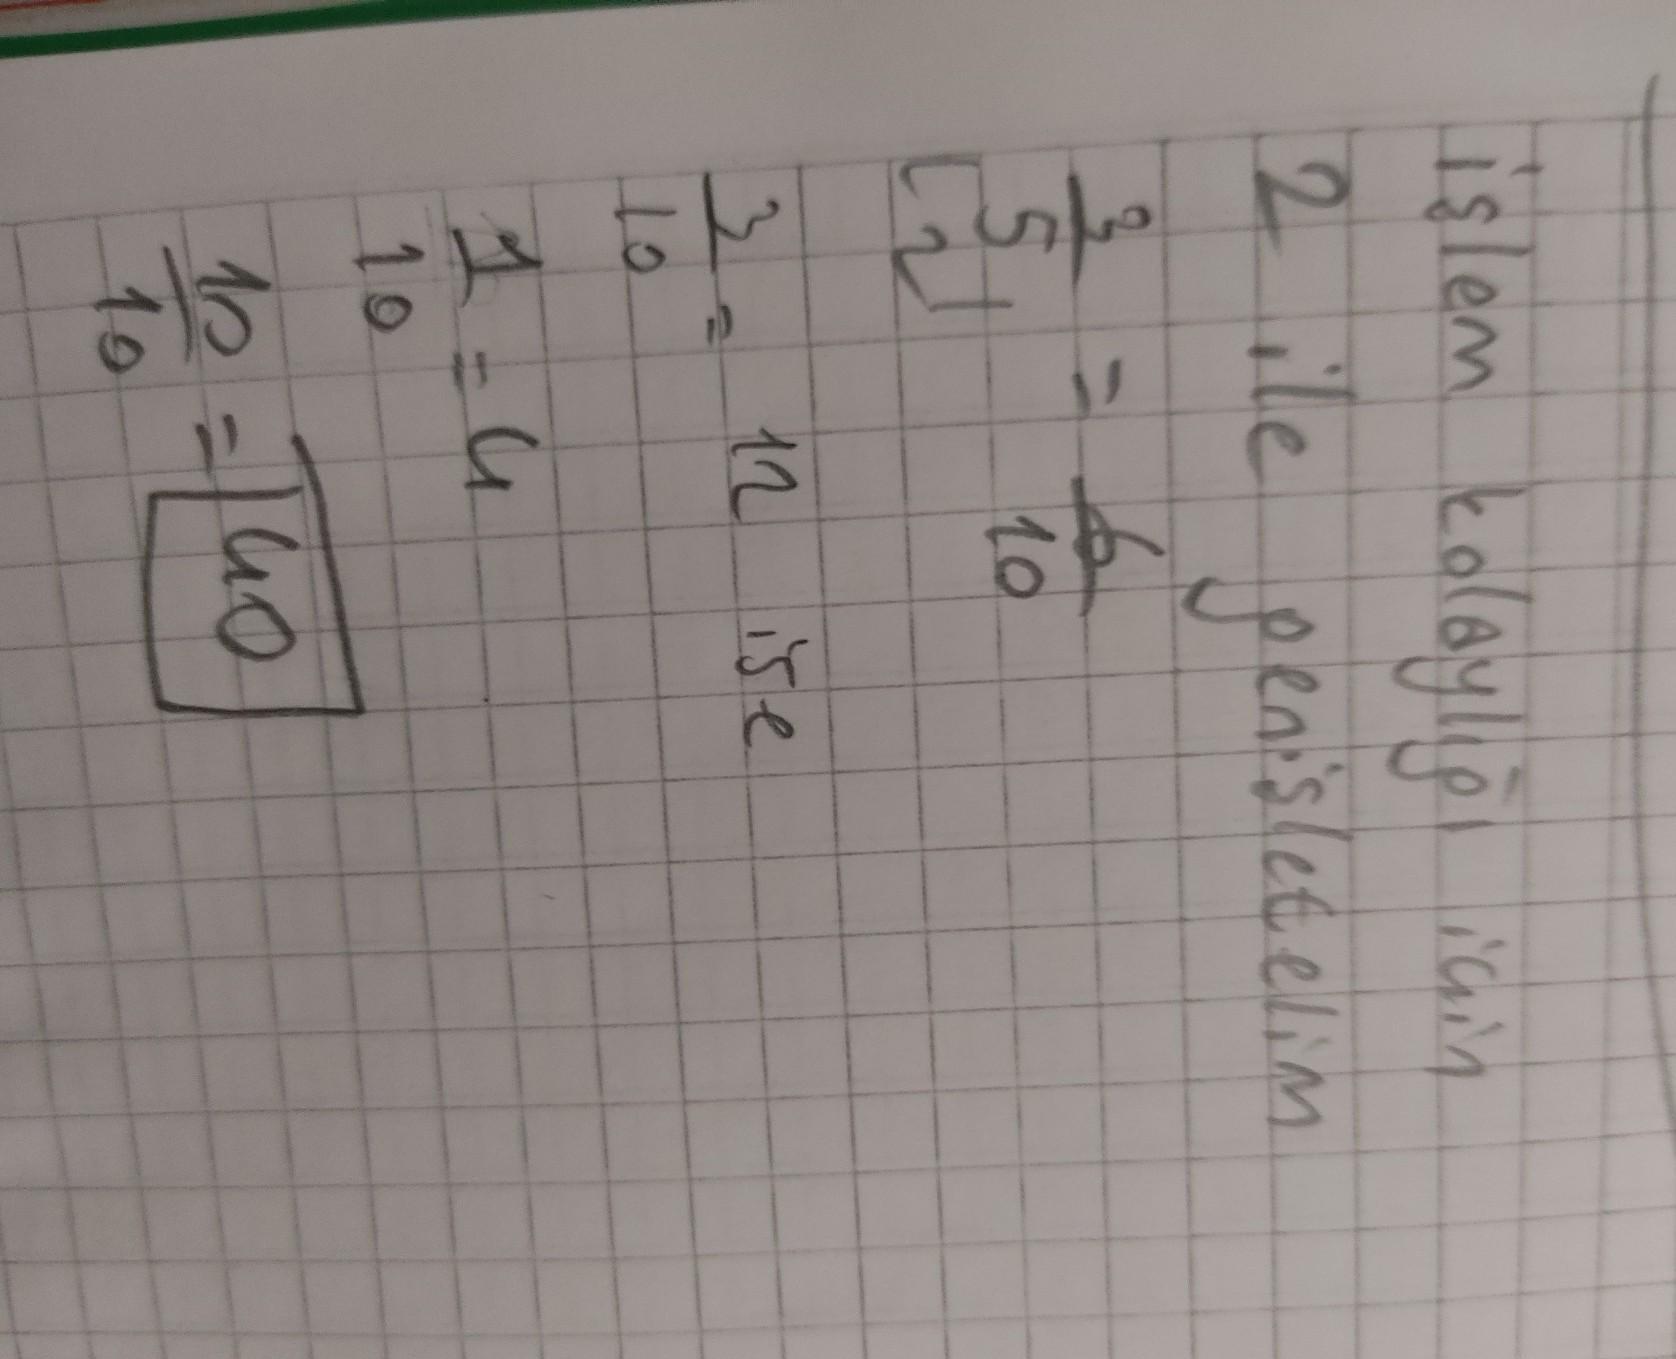 işlem kolaylığı için
2 ile genişletelim
3/5 = 6/10
[2]
3/10 = 12 ise
1/10 = 4
10/10 = 40